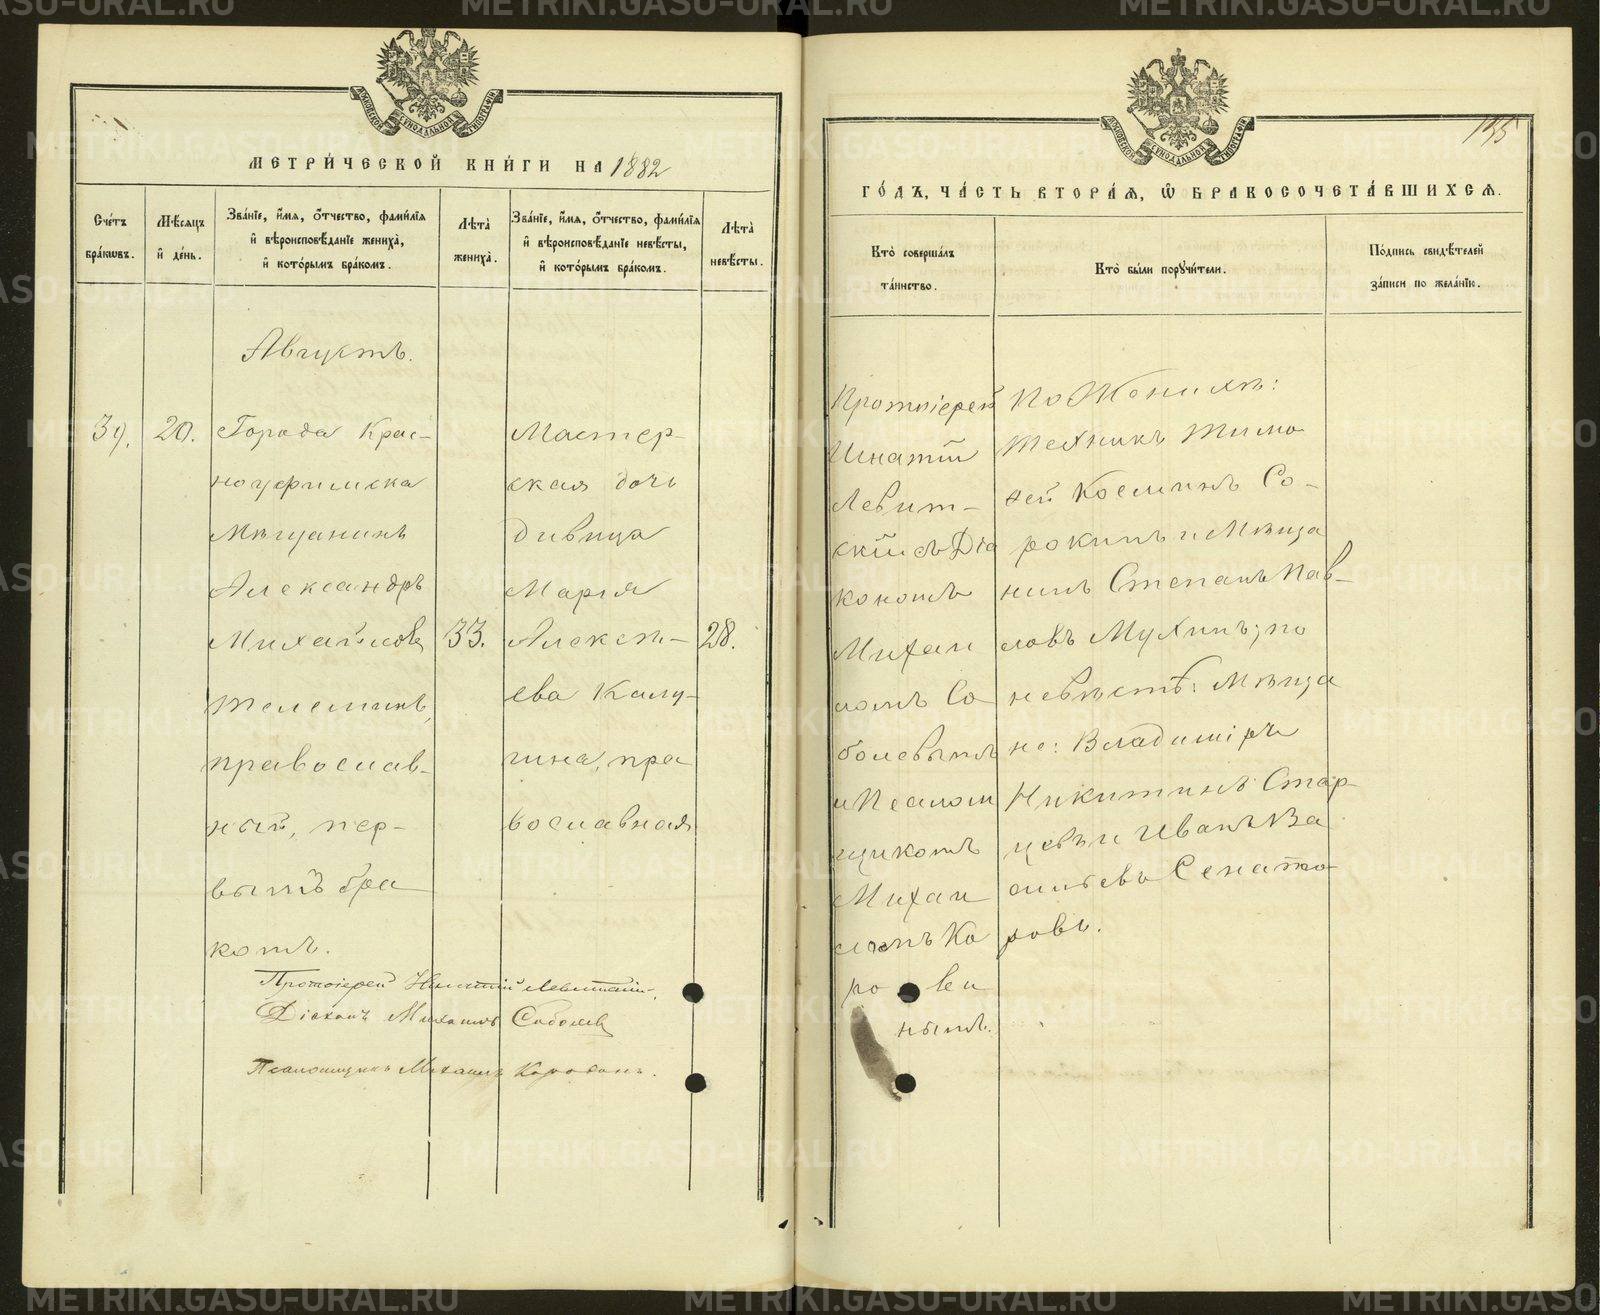 МЕТРИ́ЧЕСКОЙ КНИ́ГИ НА 1882
Сче́тъ бра́кωвъ.
Мѣ́сяцъ и҆ де́нь.
Зва́нїе, и҆́мя, ѻ҆́тчество, фами́лїя и҆ вѣроисповѣ́данїе жениха̀, и҆ кото́рымъ бра́комъ.
Лѣта̀ жениха̀.
Зва́нїе, и҆́мя, ѻ҆́тчество, фами́лїя и҆ вѣроисповѣ́данїе невѣ́сты, и҆ кото́рымъ бра́комъ.
Лѣта̀ невѣ́сты.
Августъ.
39.
20.
Города Крас-
ноуфимска
Мѣщанинъ
Александръ
Михайловъ
Телегинъ,
православ-
ный, пер-
вымъ бра
комъ.
33.
Мастер-
ская дочь
дивица
Мария
Алексѣ-
ева Калу-
гина, пра
вославная
28.
Протоіерей Игнатій Левитскій.
Діаконъ Михаилъ Соболев
Псаломщикъ Михаилъ Коровин.
МОСКОВСКОЙ СѴНОДАЛЬНОЙ ТИПОГРАФІИ
МОСКОВСКОЙ СѴНОДАЛЬНОЙ ТИПОГРАФІИ
ГО́ДЪ, ЧА́СТЬ ВТОРА́Я, Ѡ҆ БРАКОСОЧЕТА́ВШИХСЯ.
Кто̀ соверша́лъ
та́инство.
Кто̀ бы́ли порꙋчи́тели.
По́дпись свидѣ́телей
за́писи по жела́нїю.
Протоіерей
Игнатій
Левит-
скій съ Діа
кономъ
Михаи
ломъ Со
болевымъ
и Псалом
щикомъ
Михаи
ломъ Ко
рови
нымъ.
По Женихѣ:
техникъ Тимо
ѳей Космин Со-
рокинъ и Мѣща
нинъ Степанъ Пав-
ловъ Мухинъ; по
невѣстѣ: Мѣща
не: Владиміръ
Никитинъ Стар-
цевъ и Иванъ Ва
сильевъ Сенато
ровъ.
METRIKI.GASO-URAL.RU